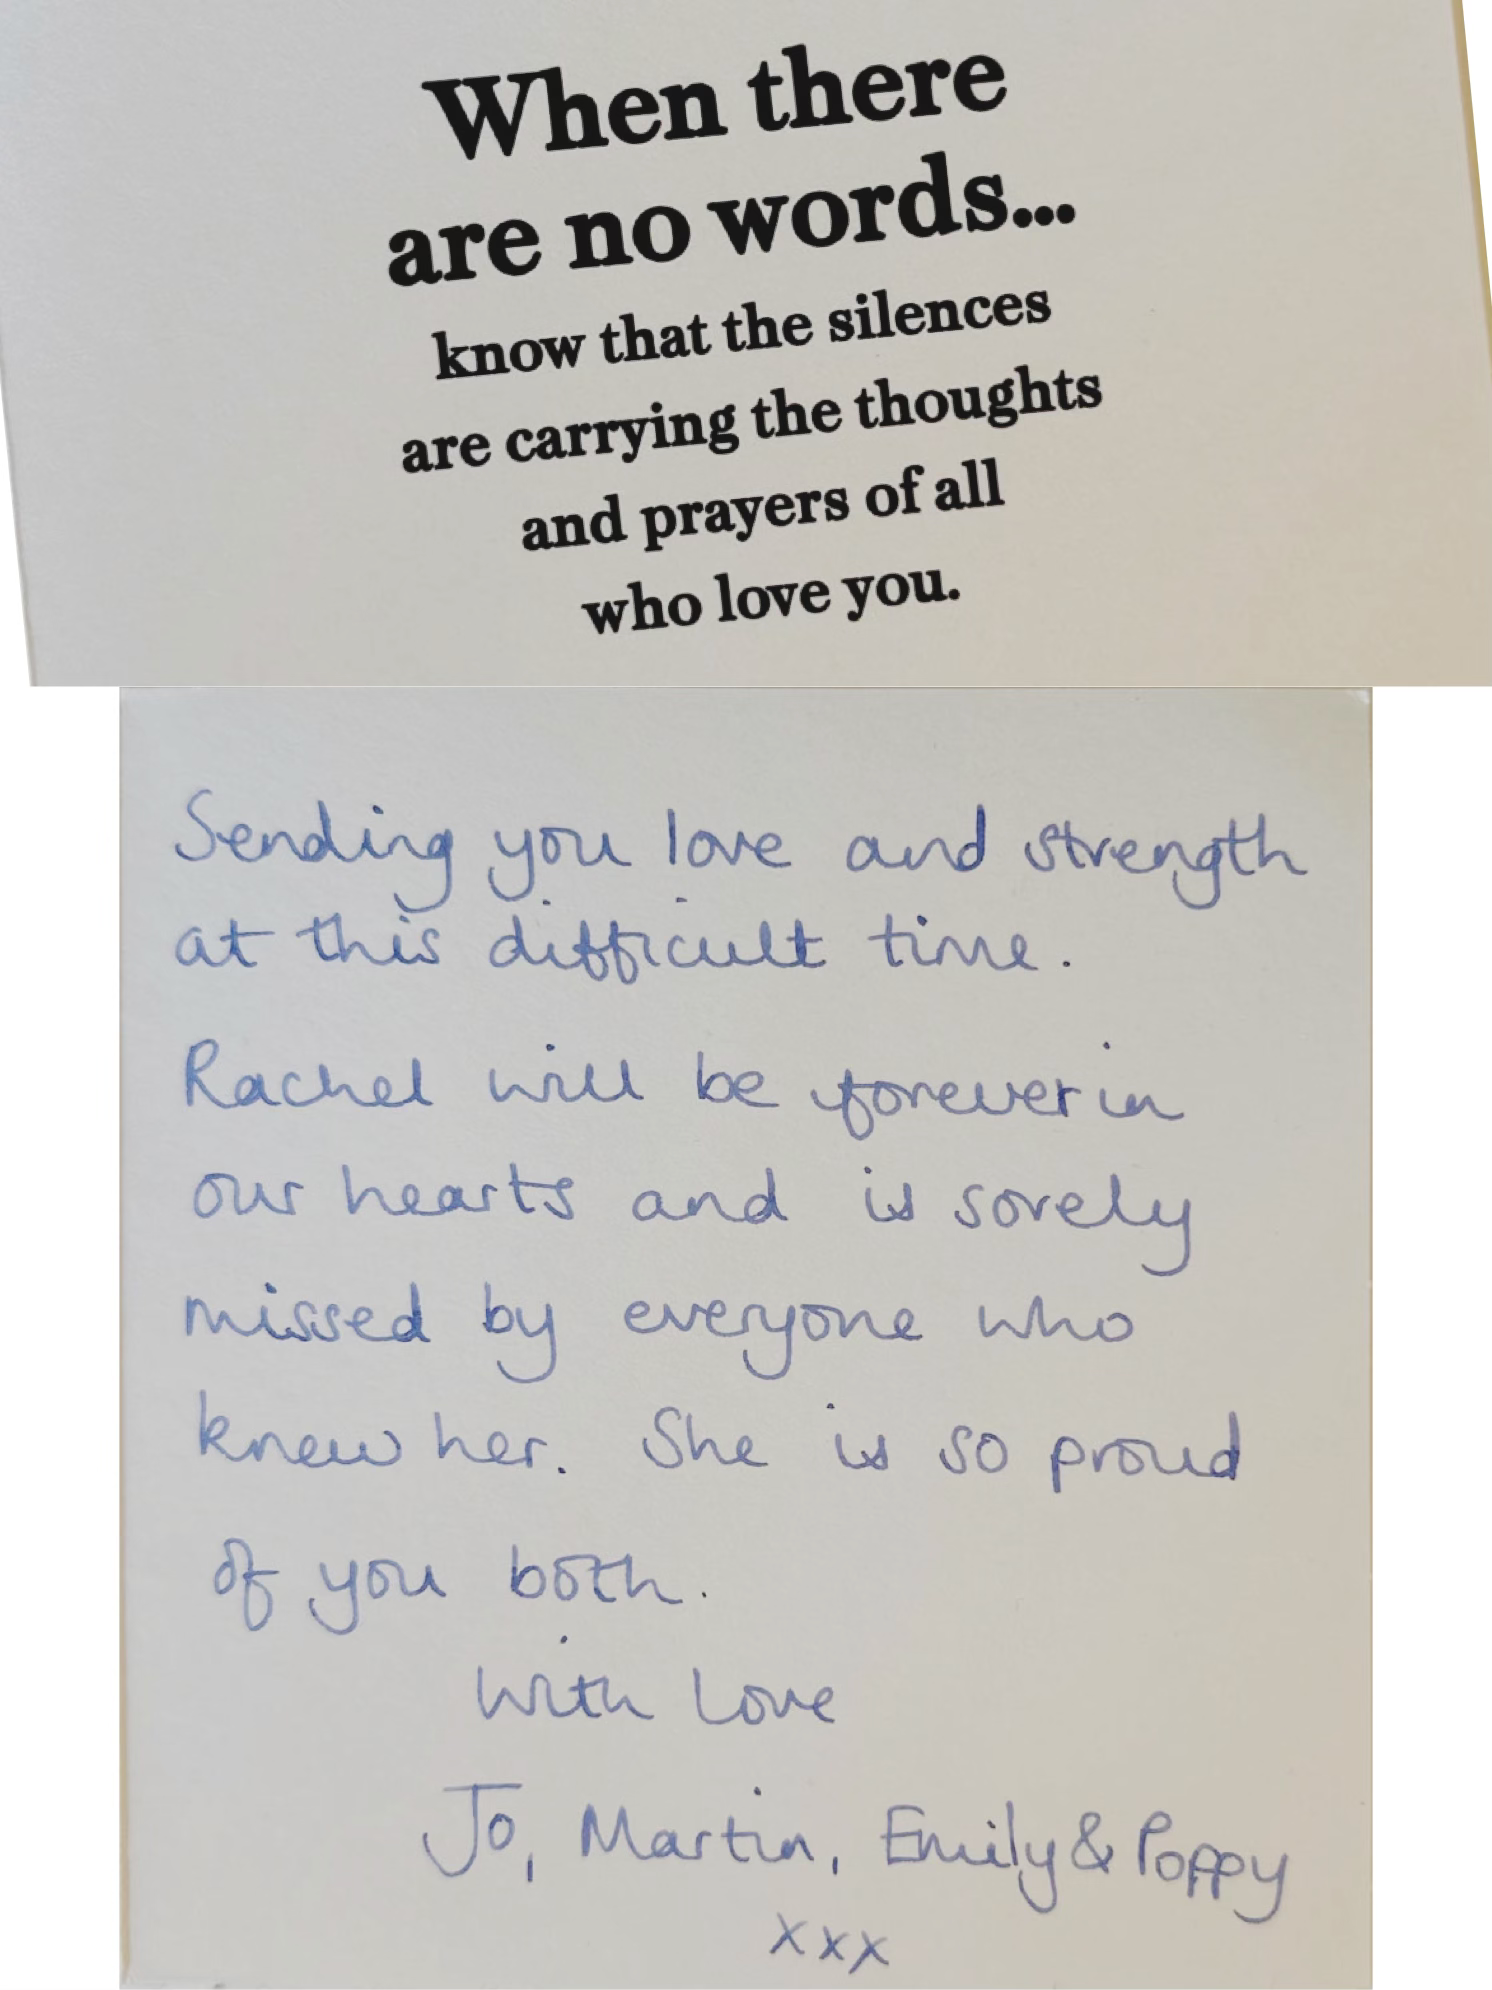 When there
are no words...
know that the silences
are carrying the thoughts
and prayers of all
who love you.
Sending you love and strength
at this difficult time.
Rachel will be forever in
our hearts and is sorely
missed by everyone who
knew her. She is so proud
of you both.
With Love
Jo, Martin, Emily & Poppy
xxx